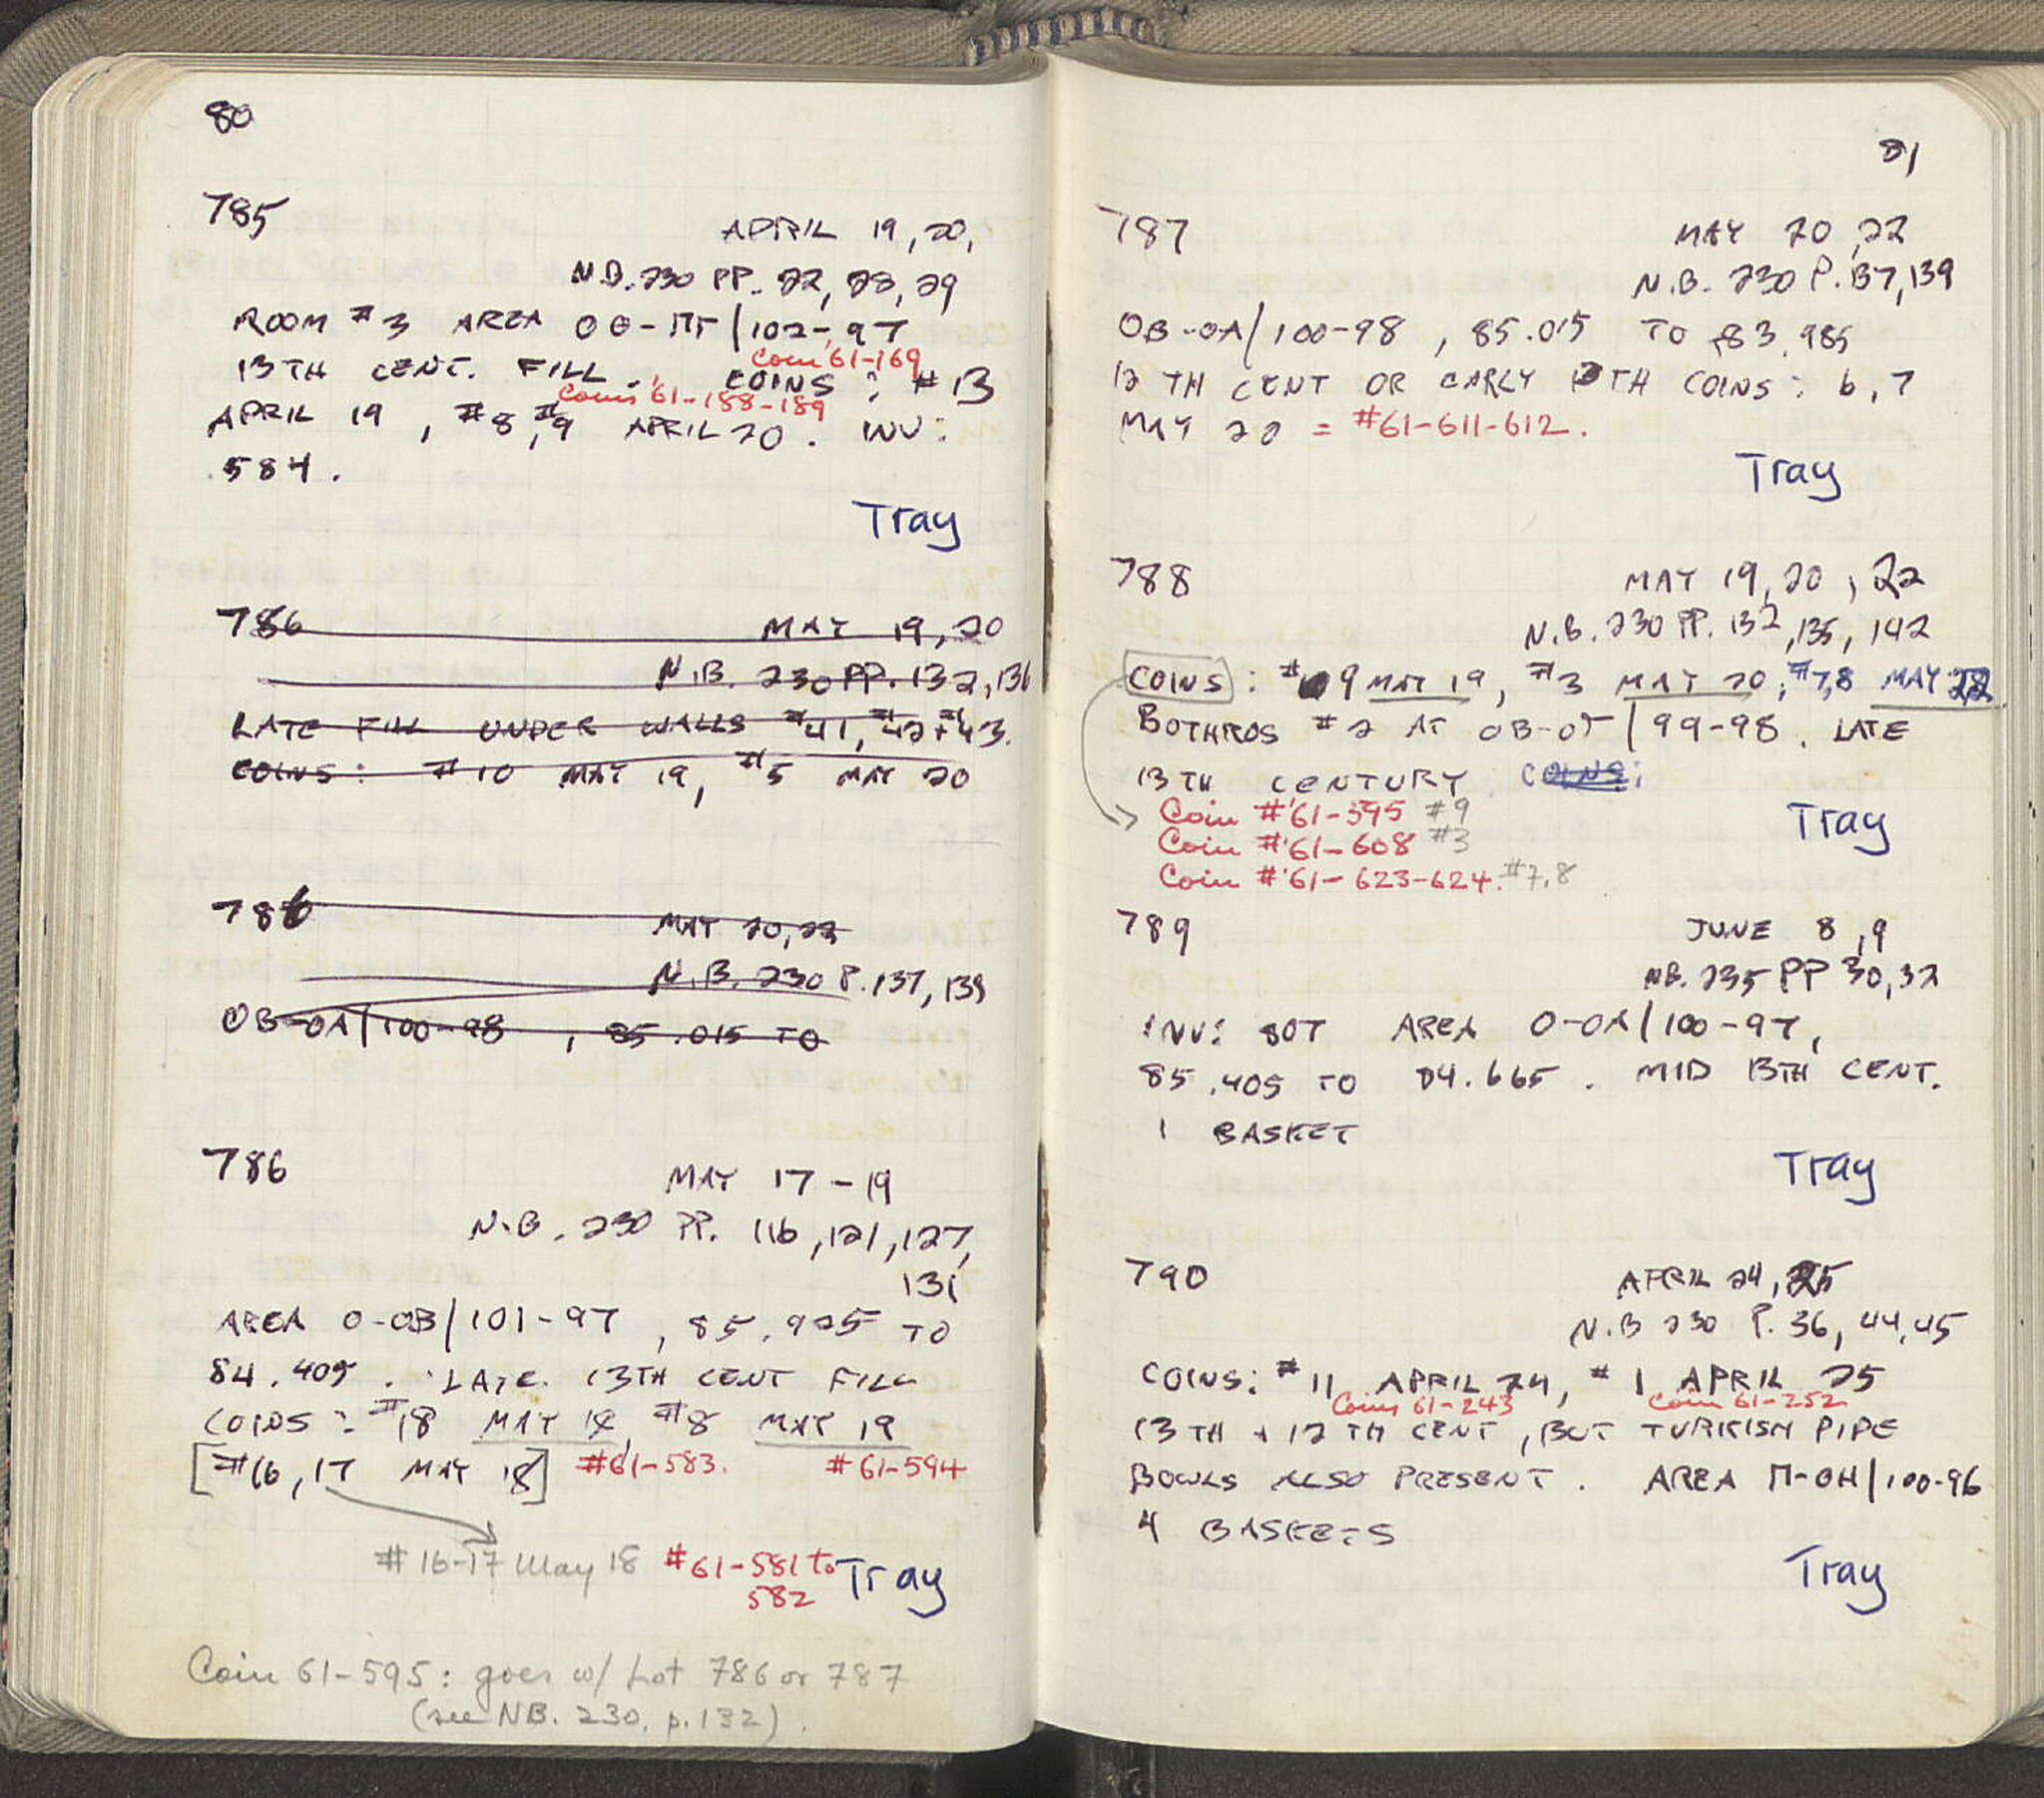 80
785
APRIL 19, 20,
N.B. 230 PP. 22, 28, 29
ROOM #3 AREA ΟΘ-ΠΓ/102-97
13TH CENT. FILL. COINS: #13
Coin '61-169
Coins '61-188-189
APRIL 19, #8, #9 APRIL 20. INV:
584.
Tray
786 MAY 19, 20
N.B. 230 PP. 132, 136
LATE FILL UNDER WALLS #41, #42 + #43.
COINS: #10 MAY 19, #5 MAY 20
786 MAY 20, 22
N.B. 230 P. 137, 139
OB-OA/100-98, 85.015 TO
786
MAY 17-19
N.B. 230 PP. 116, 121, 127,
131
AREA O-OB/101-97, 85.925 TO
84.405. LATE 13TH CENT FILL
COINS: #18 MAY 18, #8 MAY 19
[#16, 17 MAY 18] #61-583. #61-594
#16-17 May 18 #61-581 to
582
Tray
Coin 61-595: goes w/ Lot 786 or 787
(see NB. 230, p. 132).
81
787
MAY 20, 22
N.B. 230 P. 137, 139
OB-OA/100-98, 85.015 TO 83.985
12TH CENT OR EARLY 13TH COINS: 6, 7
MAY 20 = #61-611-612.
Tray
788
MAY 19, 20, 22
N.B. 230 PP. 132, 135, 142
COINS: #9 MAY 19, #3 MAY 20, #7,8 MAY 22
BOTHROS #2 AT OB-OΓ/99-98. LATE
13TH CENTURY COINS:
Coin #'61-595 #9
Coin #'61-608 #3
Coin #'61-623-624. #7,8
Tray
789
JUNE 8, 9
NB. 235 PP 30, 32
INV: 807 AREA O-OA/100-97,
85.405 TO 84.665. MID 13TH CENT.
1 BASKET
Tray
790
APRIL 24, 25
N.B 230 P. 36, 44, 45
COINS: #11 APRIL 24, #1 APRIL 25
Coin 61-243 Coin 61-252
13TH + 12TH CENT, BUT TURKISH PIPE
BOWLS ALSO PRESENT. AREA Π-ΟΗ/100-96
4 BASKETS
Tray